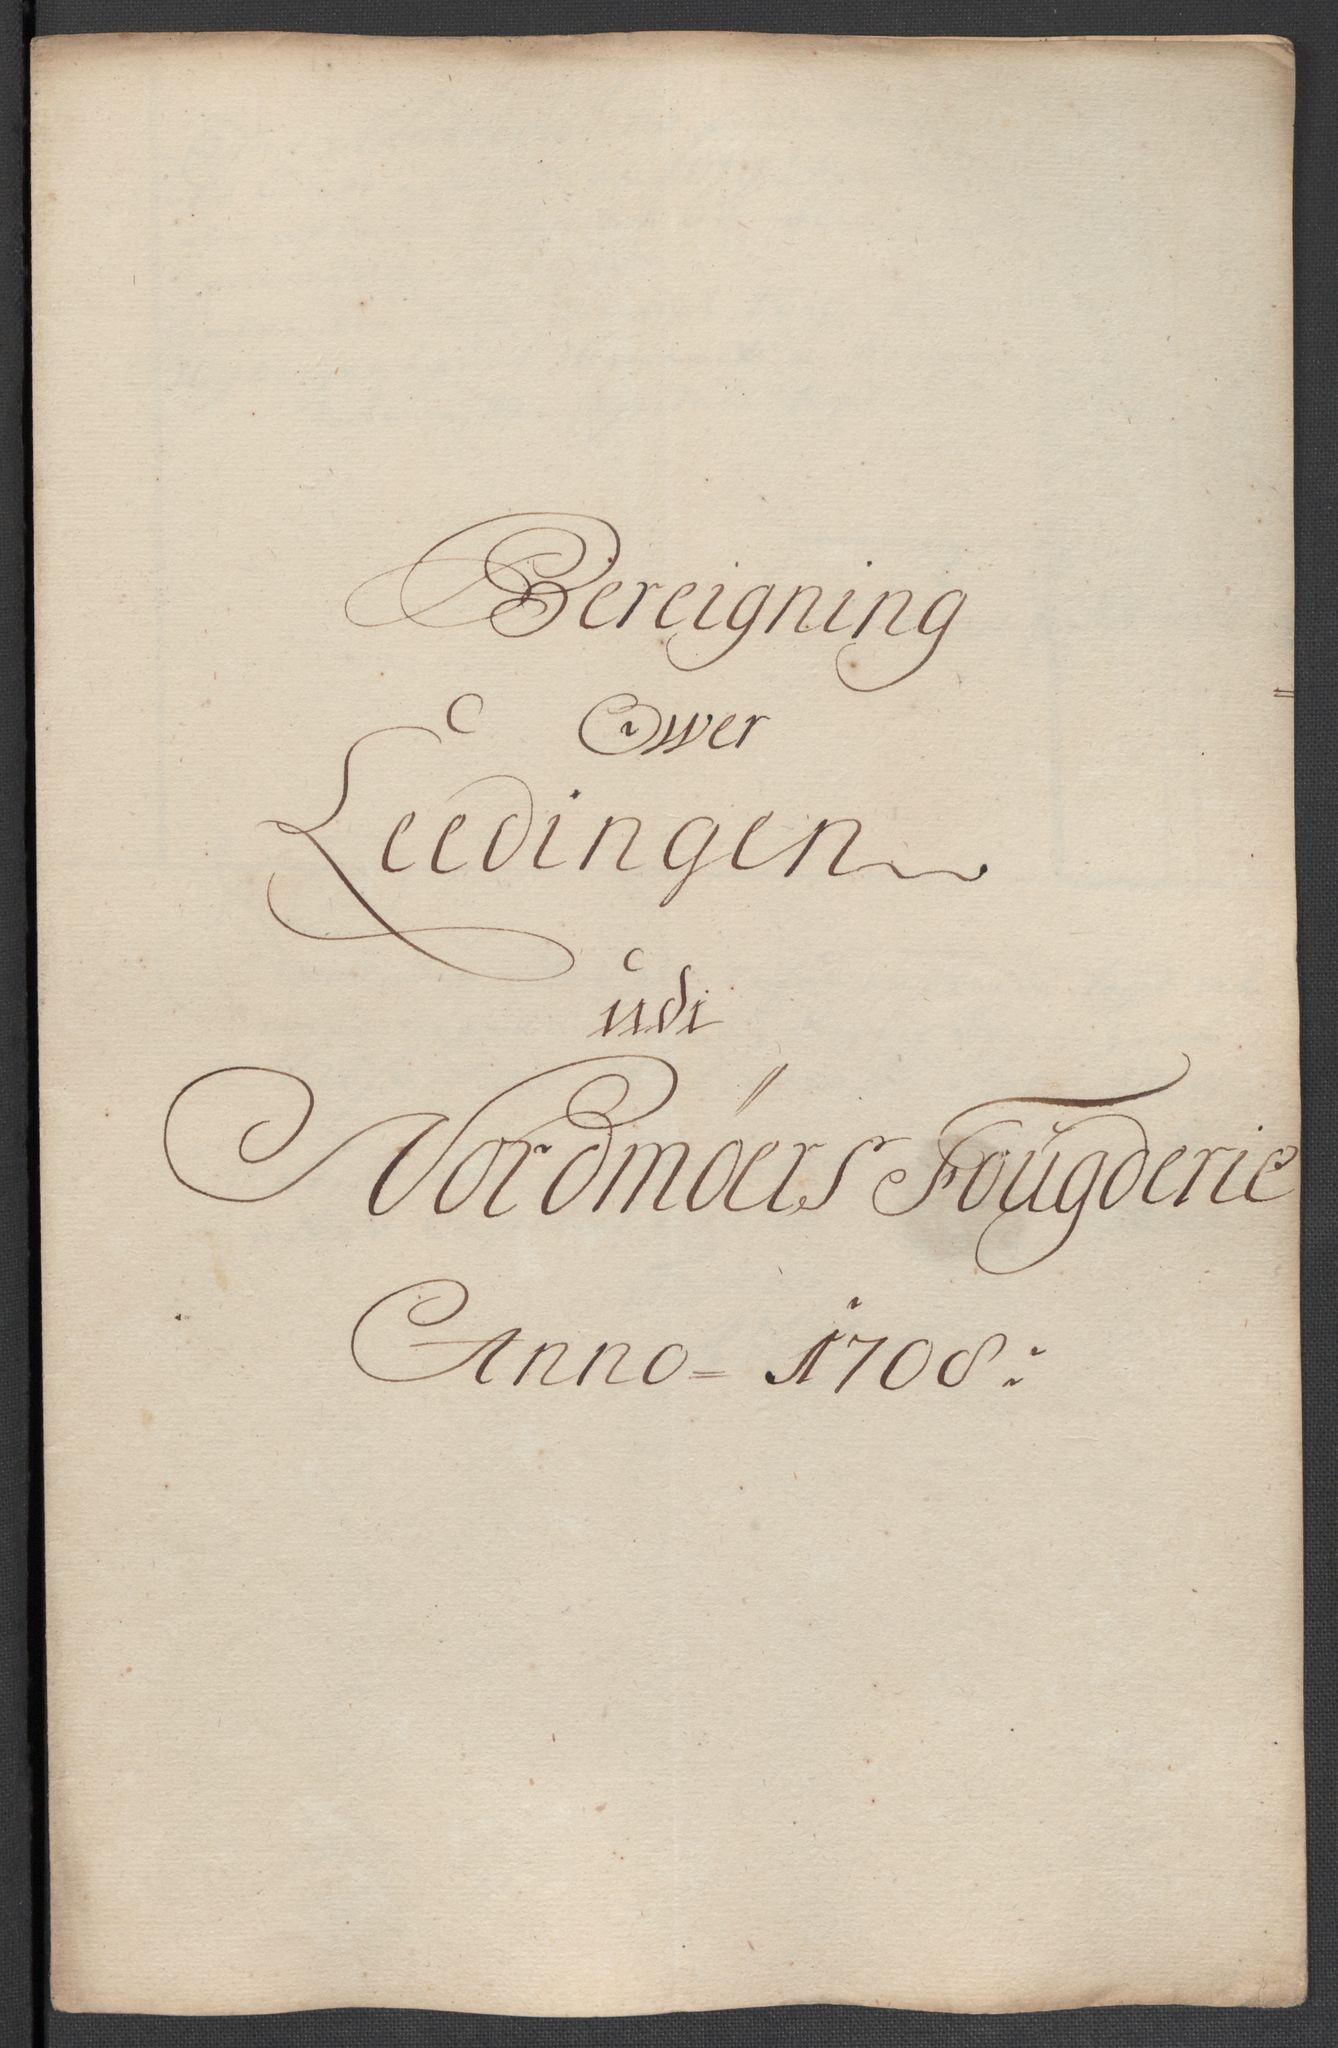 Bereigning
Ower
Leedingen
udi
Nordmøers Fougderie
Anno = 1708: